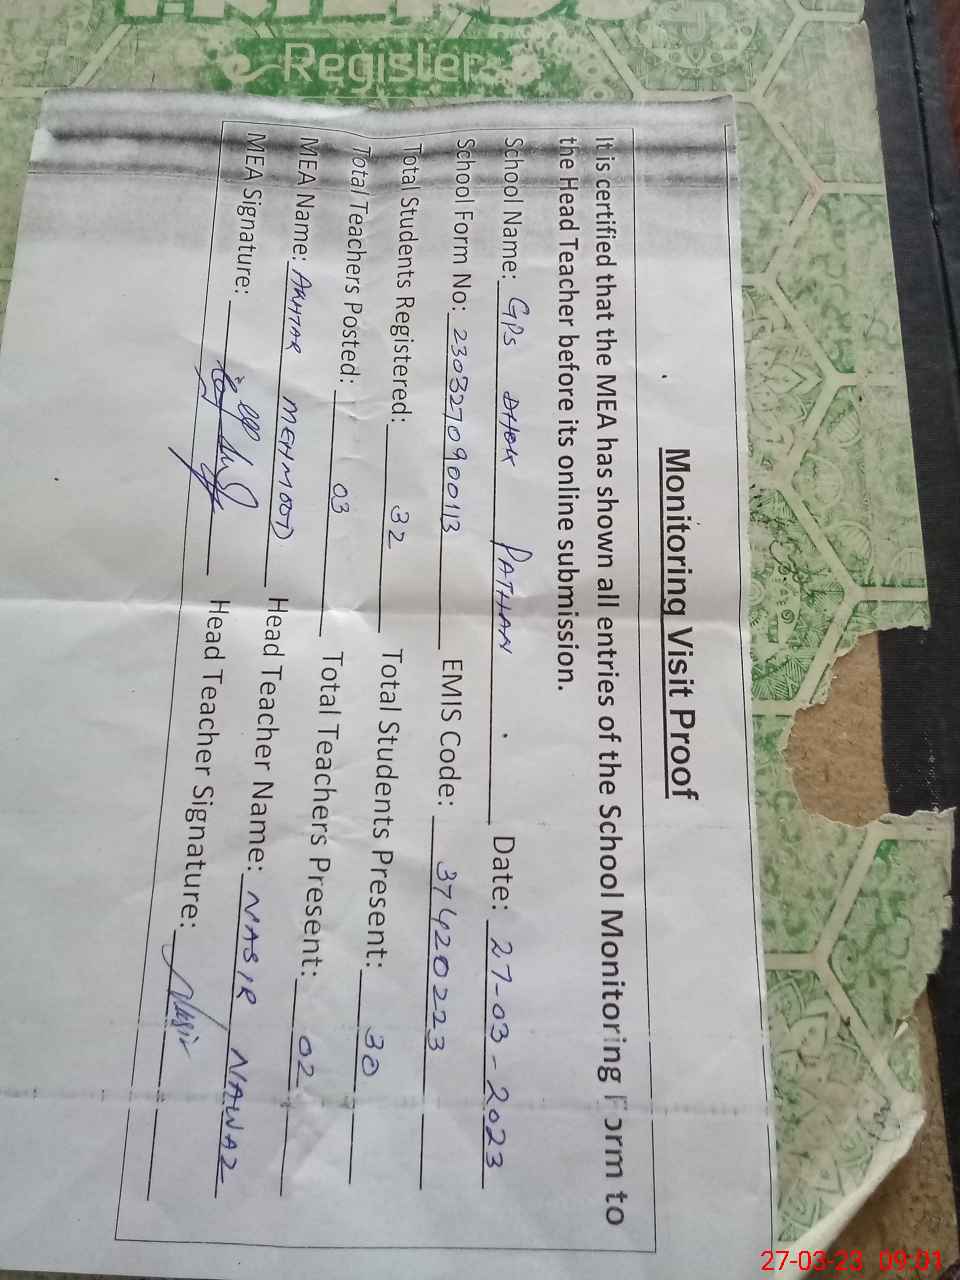 Register
Monitoring Visit Proof
It is certified that the MEA has shown all entries of the School Monitoring Form to
the Head Teacher before its online submission.
School Name: GPS DHOK PATHAN Date: 27-03-2023
School Form No: 2303270900113 EMIS Code: 37420223
Total Students Registered: 32 Total Students Present: 30
Total Teachers Posted: 03 Total Teachers Present: 02
MEA Name: AKHTAR MEHMOOD Head Teacher Name: NASIR NAWAZ
MEA Signature: Head Teacher Signature: Nasir
27-03-23 09:01